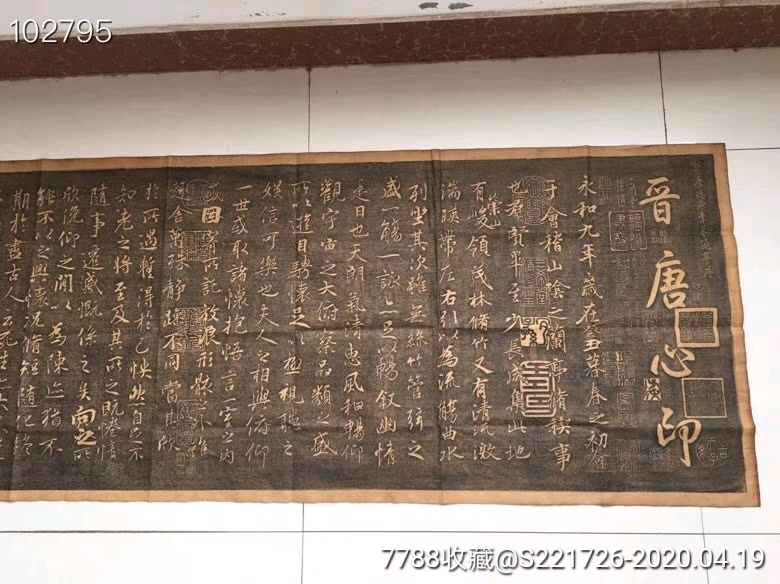 102795
晉唐心印
永和九年歲在癸丑暮春之初會
于會稽山陰之蘭亭脩稧事
也羣賢畢至少長咸集此地
有崇山峻領茂林脩竹又有清流激
湍暎帶左右引以為流觴曲水
列坐其次雖無絲竹管弦之
盛一觴一詠亦足以暢叙幽情
是日也天朗氣清惠風和暢仰
觀宇宙之大俯察品類之盛
所以遊目騁懷足以極視聽之
娛信可樂也夫人之相與俯仰
一世或取諸懷抱悟言一室之內
或因寄所託放浪形骸之外雖
趣舍萬殊靜躁不同當其欣
於所遇暫得於己快然自足不
知老之將至及其所之既惓情
隨事遷感慨係之矣向之所
欣俛仰之間以為陳迹猶不
能不以之興懷況脩短隨化終
期於盡古人云死生亦大
7788收藏@S221726-2020.04.19